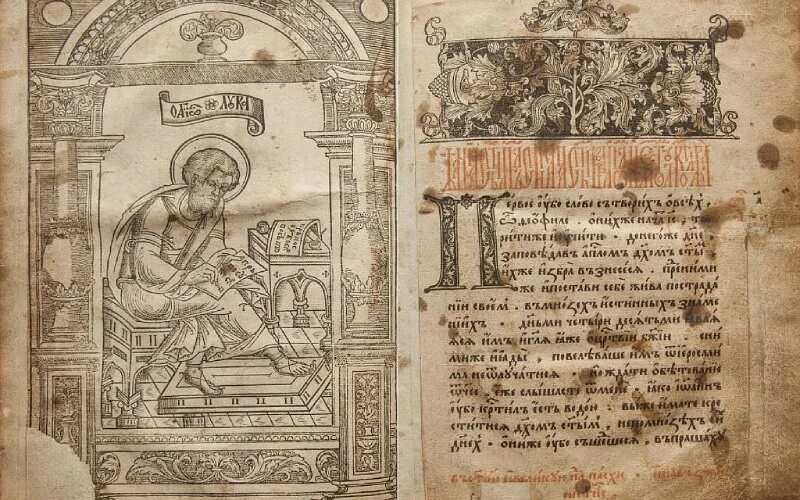 ОАГІОС ЛѸКА
Первое ѹбо слово сътворихъ ѡвсѣхъ,
ѽ ѳеѡфиле. ѡнихже начатъ і҃с, тво
рити же и ѹчити. донегоже дн҃е,
заповѣдавъ ап҃лѡмъ дх҃омъ ст҃ы
ихже избра възнесеся. преними
же ипостави себе жива пострада
нїи своемъ. въмнозѣхъ истинныхъ знаме
нїихъ. дньми четыри десѧтьми ꙗвлѧ
ꙗсѧ имъ игл҃ѧ ꙗже ѡцр҃твїи бж҃їи. сни
миже иꙗды, повелѣваше имъ ѿіерѹсали
ма неѿлѹчатисѧ. но ждати ѡбѣтованїе
ѿчее, еже слышасте ѿмене. ꙗко іѡаннъ
ѹбо крⷭтилъ есть водою. выже имате кре
ститисѧ дх҃омъ ст҃ымъ, непомнозѣхъ сих
днех. ониже ѹбо съшедшесѧ, въпрашахѹ